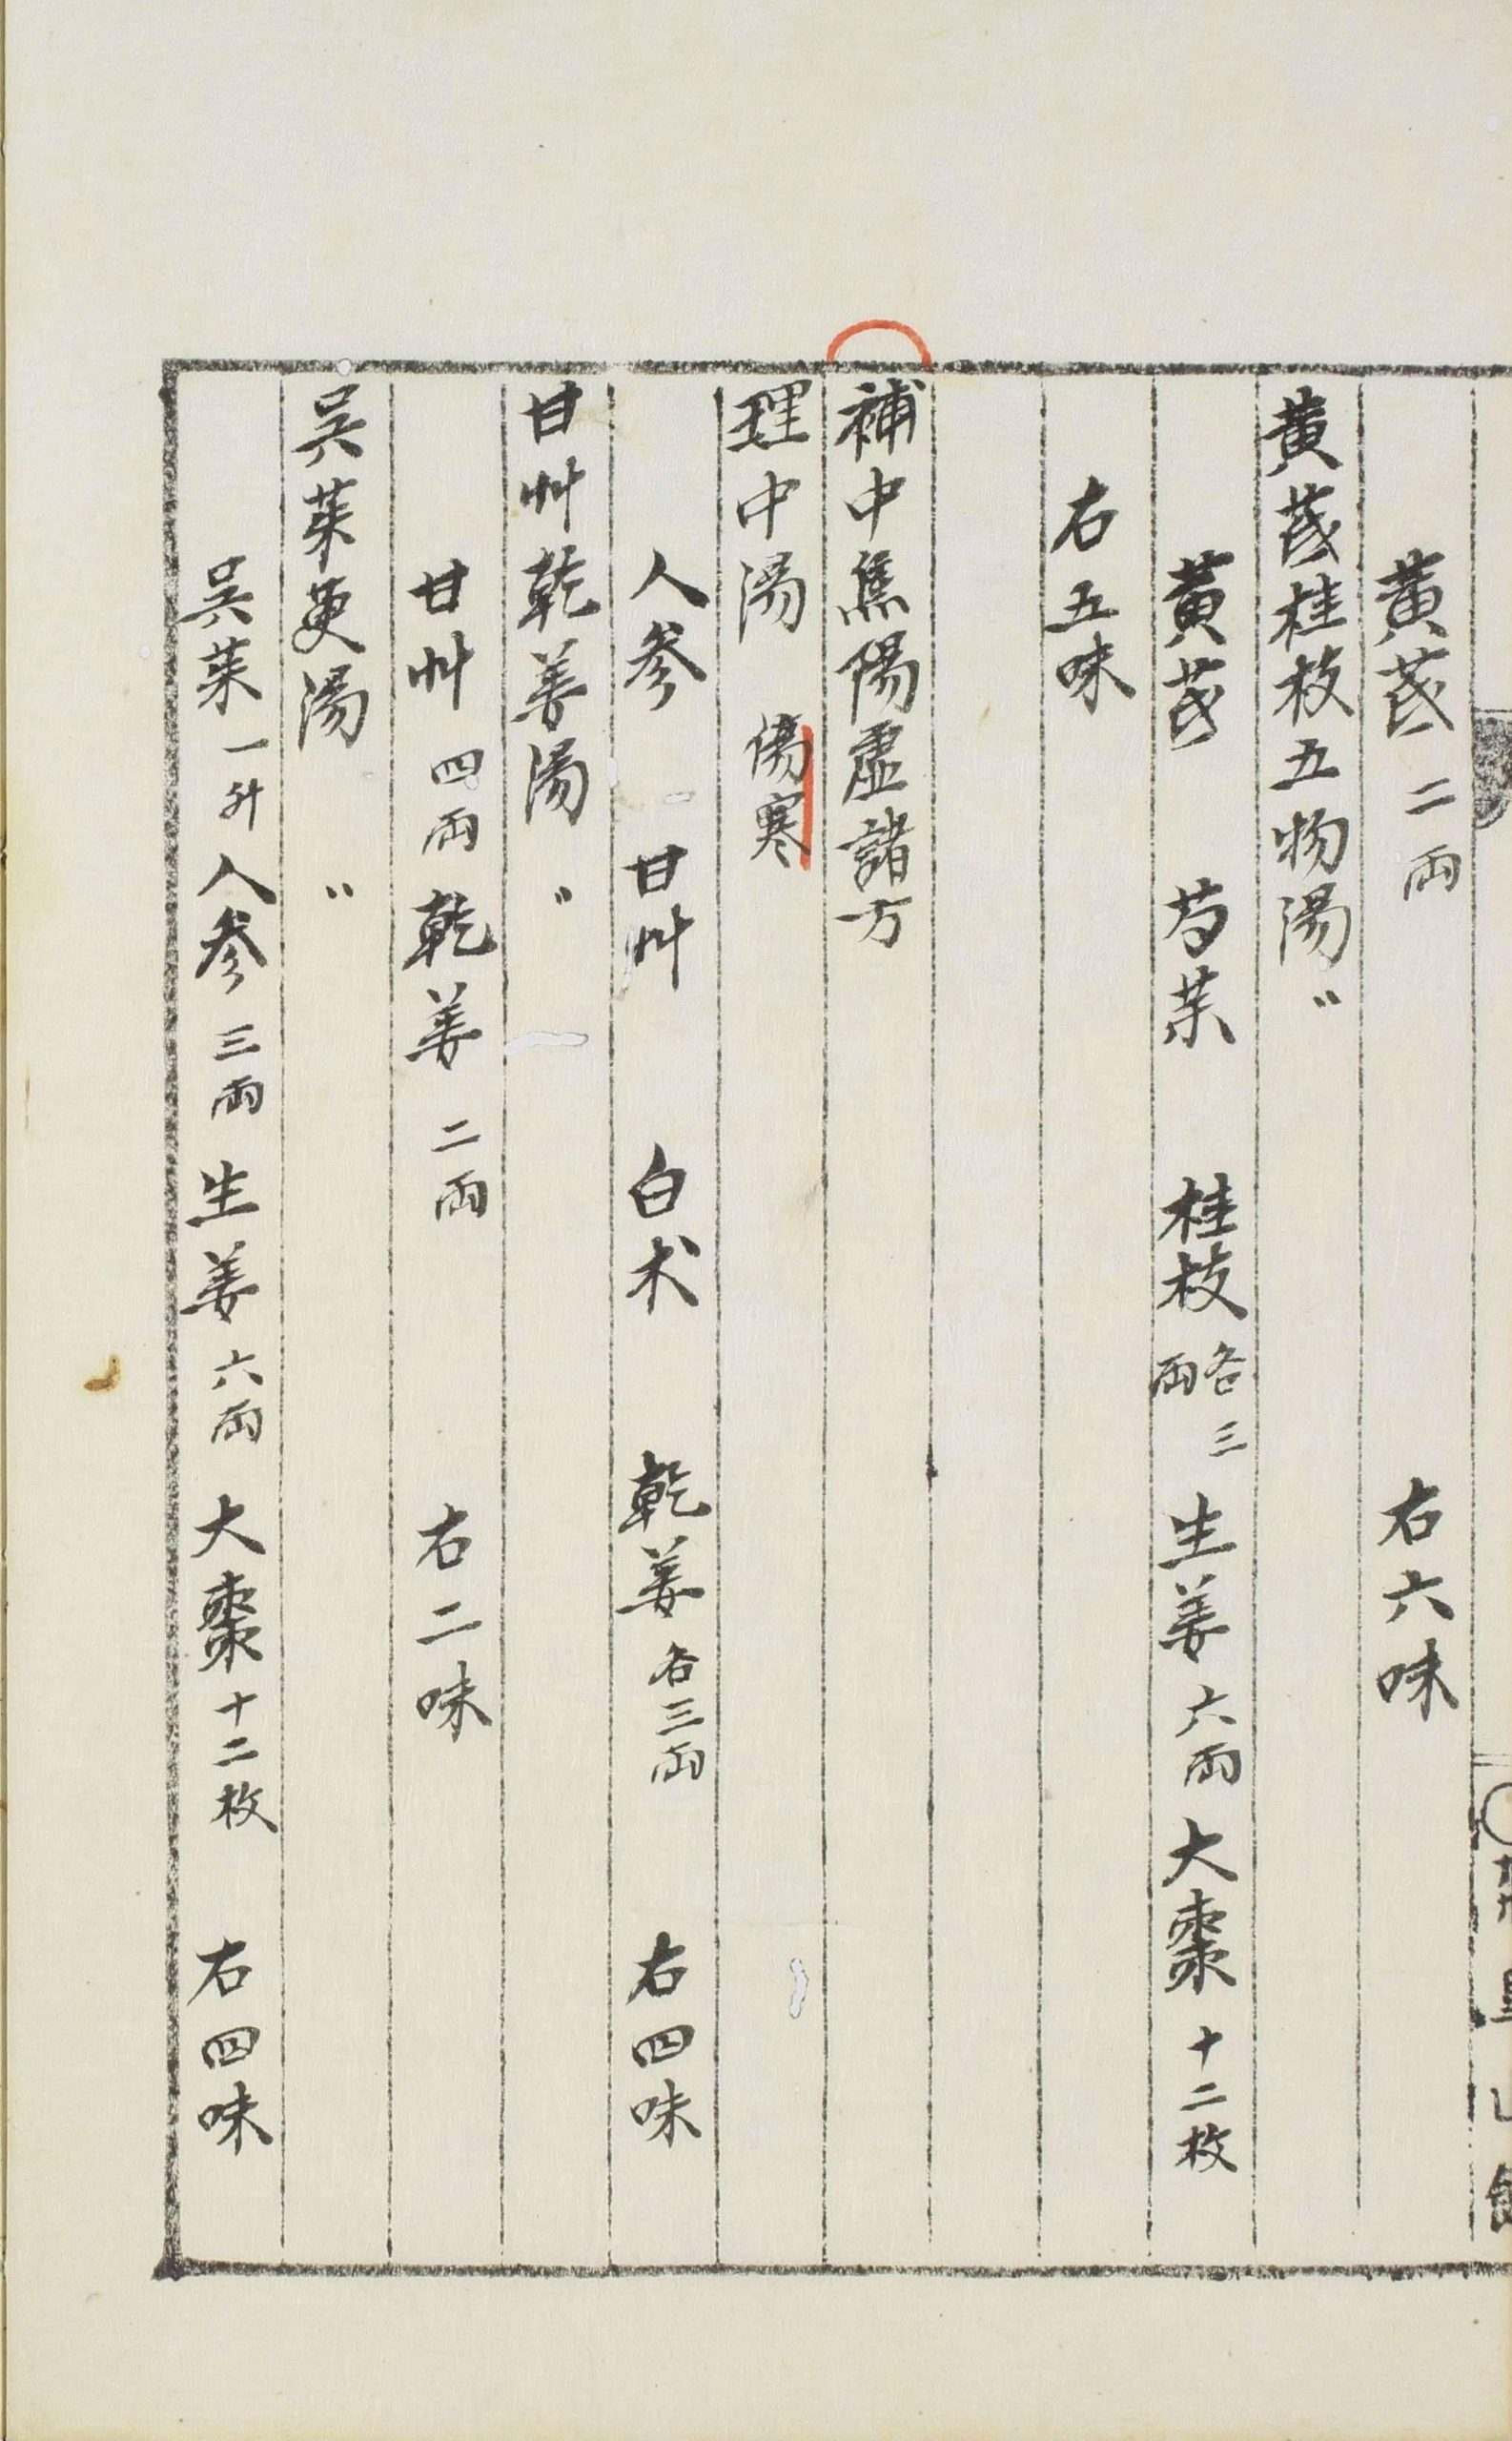 黄芪 二兩 右六味
黄芪桂枝五物湯 〃
黄芪 芍藥 桂枝 各三兩 生姜 六兩 大棗 十二枚
右五味
補中焦陽虛諸方
理中湯 傷寒
人參 甘艸 白术 乾姜 各三兩 右四味
甘艸乾姜湯 〃
甘艸 四兩 乾姜 二兩 右二味
吳茱萸湯 〃
吳茱 一升 人參 三兩 生姜 六兩 大棗 十二枚 右四味